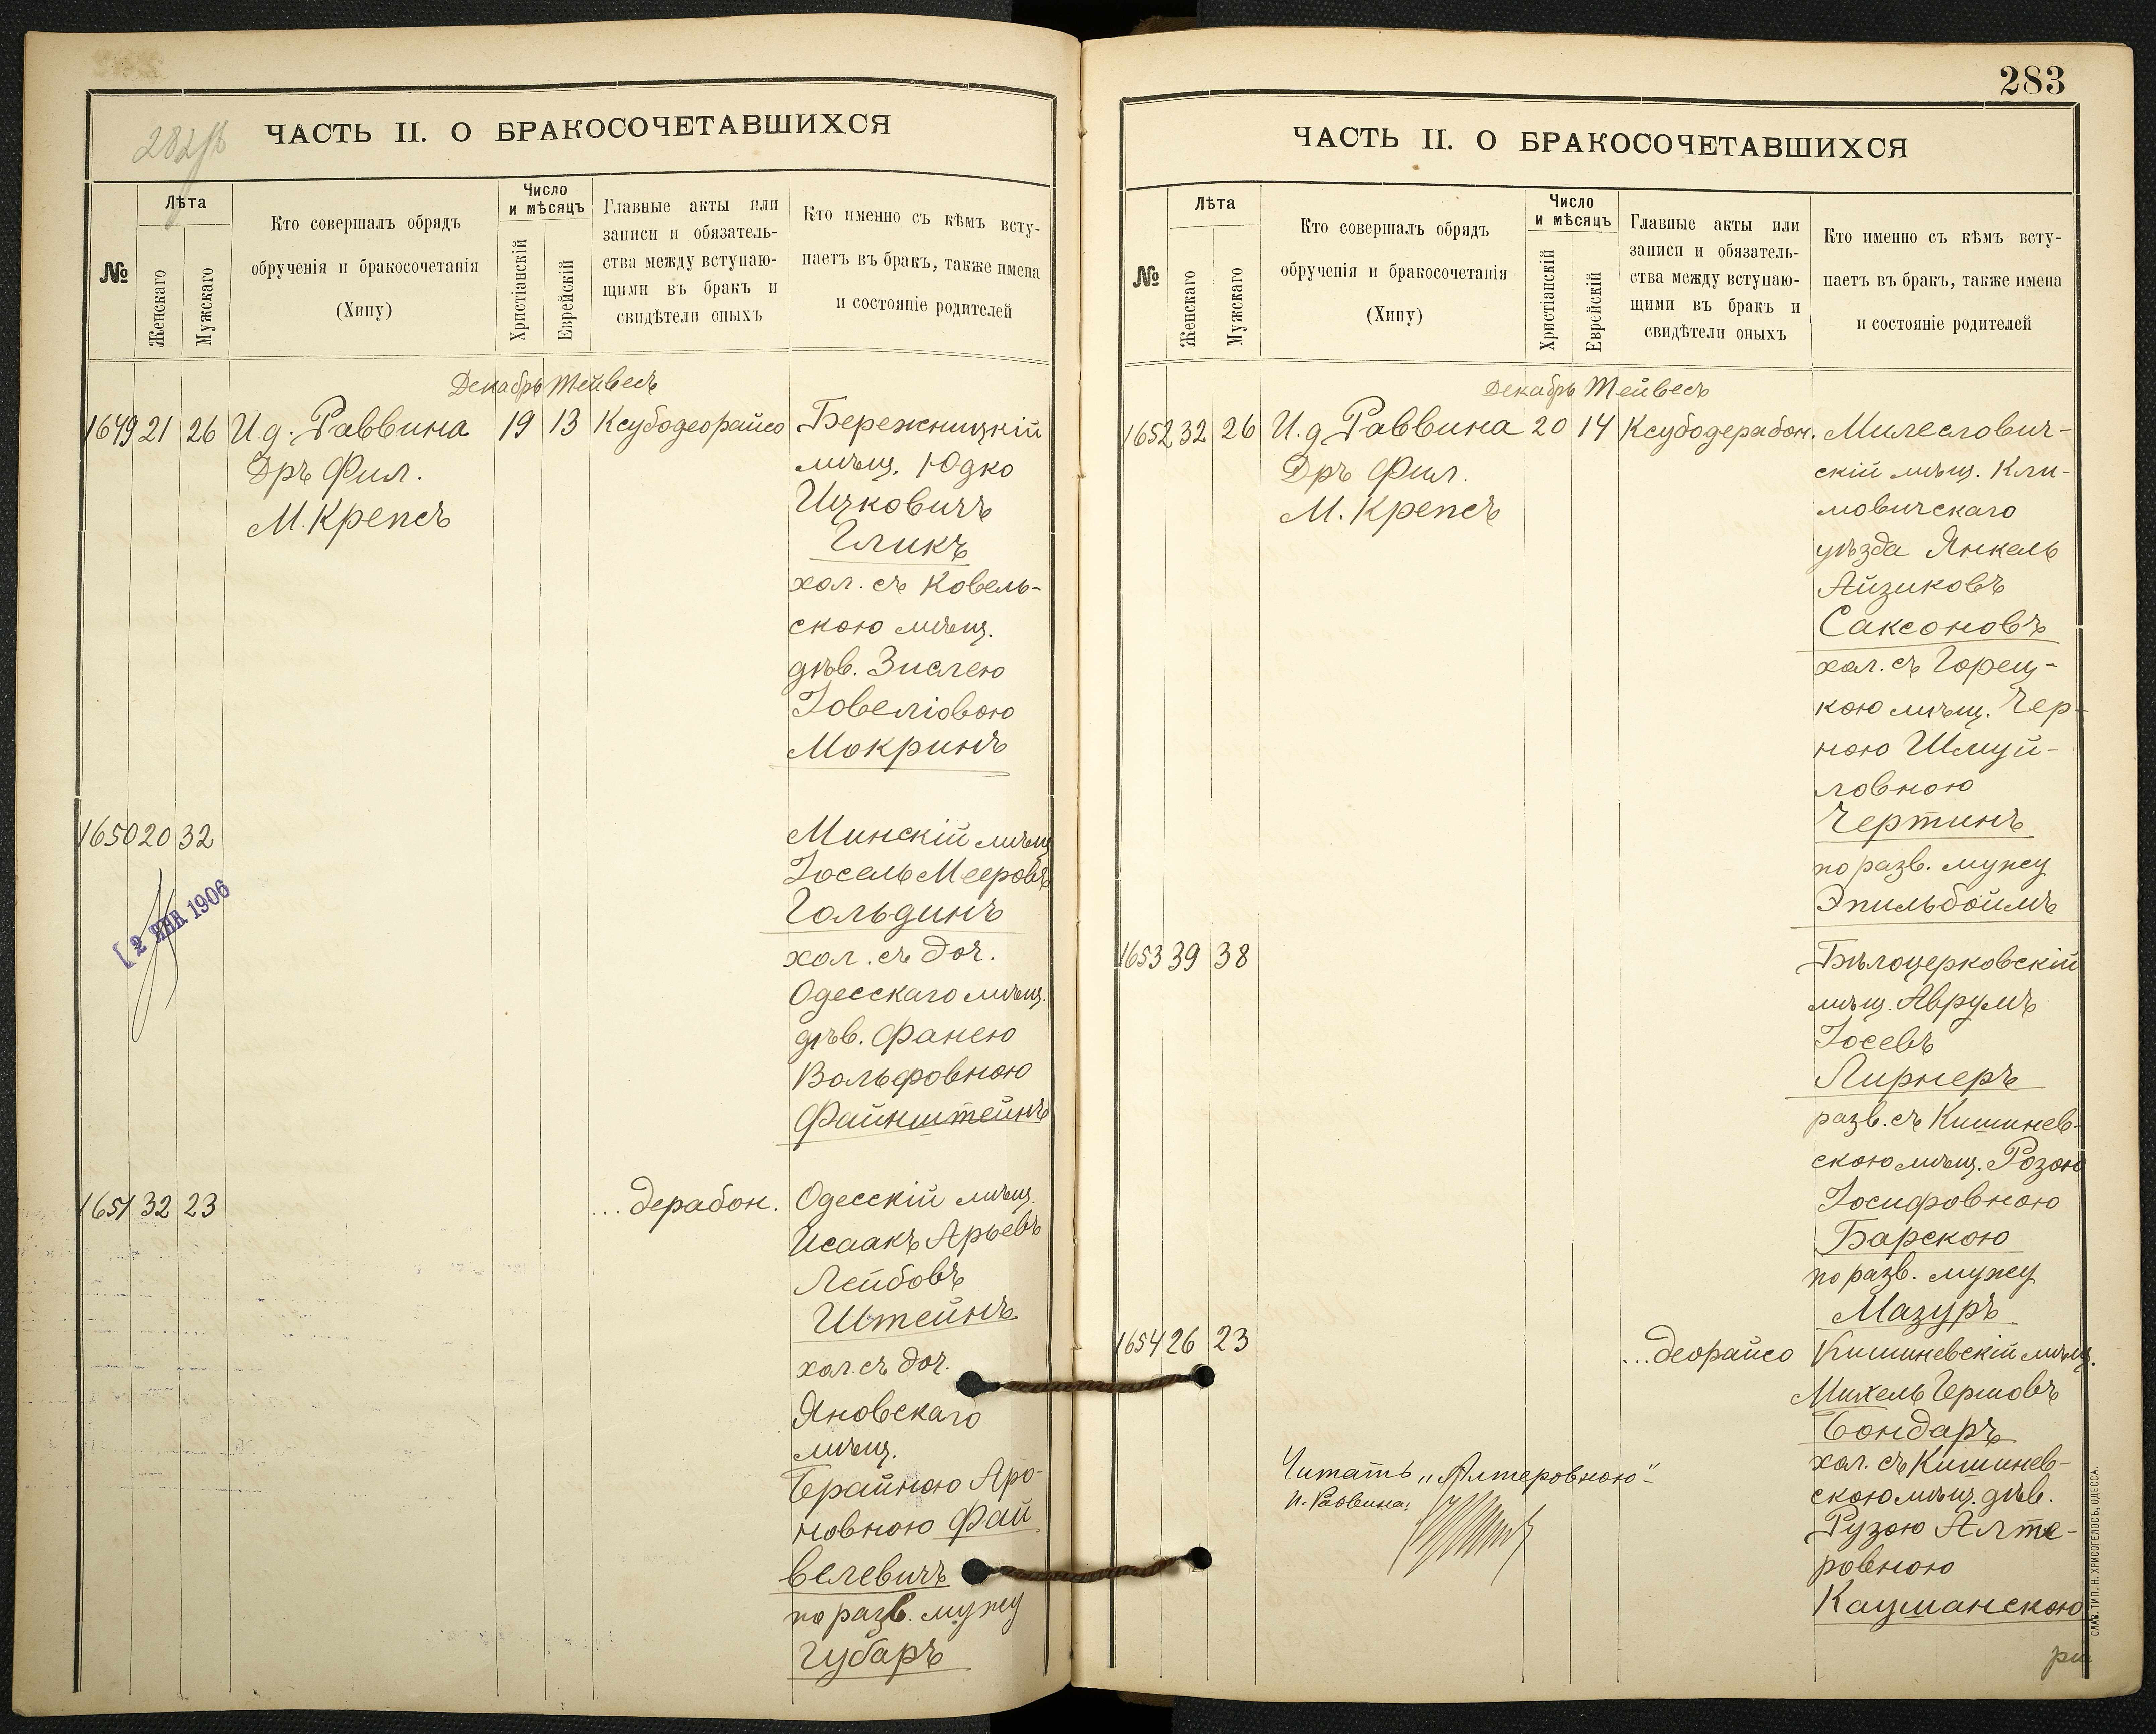 282 об
ЧАСТЬ II. О БРАКОСОЧЕТАВШИХСЯ
№
Лѣта
Женскаго
Мужскаго
Кто совершалъ обрядъ
обрученія и бракосочетанія
(Хипу)
Число
и мѣсяцъ
Христіанскій
Еврейскій
Главные акты или
записи и обязатель-
ства между вступаю-
щими въ бракъ и
свидѣтели оныхъ
Кто именно съ кѣмъ всту-
паетъ въ бракъ, также имена
и состояніе родителей
Декабрь Тейвесъ
1649 21 26 И.д. Раввина 19 13 Ксубодеорайсо Бережницкій
Дръ Фил.
М. Крепсъ
мѣщ. Юдко
Ицковичъ
Гликъ
хол. съ Ковель-
скою мѣщ.
дѣв. Зислею
Іовеліовою
Мокринъ
1650 20 32 Минскій мѣщ
Іосель Мееровъ
Гольдинъ
хол. съ доч.
Одесскаго мѣщ.
дѣв. Фанею
Вольфовною
Файнштейнъ
[2 ЯНВ. 1906
1651 32 23 ... дерабон. Одесскій мѣщ.
Исаакъ Арьевъ
Лейбовъ
Штейнъ
хол. съ доч.
Яновскаго
мѣщ.
Брайною Аро-
новною Фай
велевичъ
по разв. мужу
Губаръ
283
ЧАСТЬ II. О БРАКОСОЧЕТАВШИХСЯ
№
Лѣта
Женскаго
Мужскаго
Кто совершалъ обрядъ
обрученія и бракосочетанія
(Хипу)
Число
и мѣсяцъ
Христіанскій
Еврейскій
Главные акты или
записи и обязатель-
ства между вступаю-
щими въ бракъ и
свидѣтели оныхъ
Кто именно съ кѣмъ всту-
паетъ въ бракъ, также имена
и состояніе родителей
Декабрь Тейвесъ
1652 32 26 И.д Раввина 20 14 Ксубодерабон. Милеслович-
Дръ Фил.
М. Крепсъ
скій мѣщ. Кли-
мовичскаго
уѣзда Янкель
Айзиковъ
Саксоновъ
хол. съ Горец-
кою мѣщ. Чер-
ною Шмуй-
ловною
Чертинъ
по разв. мужу
Эпильбоймъ
1653 39 38 Бѣлоцерковскій
мѣщ. Аврумъ
Іосевъ
Лирнеръ
разв. съ Кишинев-
скою мѣщ. Розою
Іосифовною
Барскою
по разв. мужу
Мазуръ
1654 26 23 ... деорайсо Кишиневскій мѣщ.
Михель Гершовъ
Бондаръ
хол. съ Кишинев-
скою мѣщ. дѣв.
Рузою Алте-
ровною
Кауманскою
Читать „Алтеровною"
И. Раввина:
СЛАВ. ТИП. Н. ХРИСОГЕЛОСЪ, ОДЕССА.